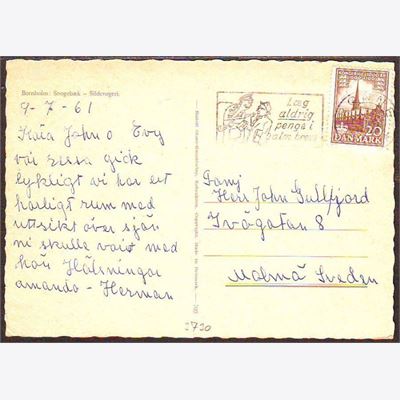 Bornholm: Snogebæk – Sildergeri.
9-7-61
Kära John o Evy
vår Essa gick
lykligt vi har ett
härligt rum med
uttsikt över sjön
ni skulle varit med
här Hälsningar
amanda - Herman
2730
Læg
aldrig
penge i
20
DANMARK
Familj
Herr John Gullfjord
Tvågatan 8
Malmö Sveden